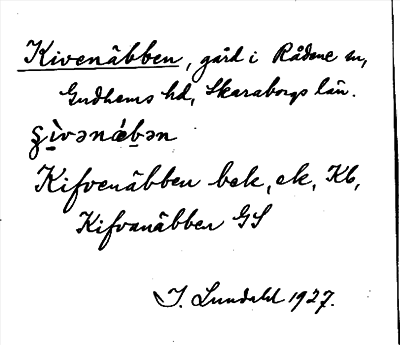 Kivenäbben, gård i Rådene sn,
Gudhems hd, Skaraborgs län.
Kifvenäbben bek, ek, Kb,
Kifvanäbben GS
J. Lundahl 1927.